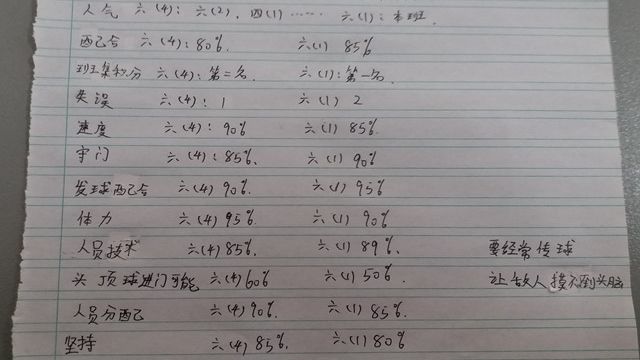 人气 六(4): 六(2), 四(1) …… 六(1): 本班.
配合 六(4): 80% 六(1) 85%
班集积分 六(4): 第二名. 六(1): 第一名.
失误 六(4): 1 六(1) 2
速度 六(4): 90% 六(1) 85%
守门 六(4): 85%. 六(1) 90%
发球配合 六(4) 90%. 六(1) 95%
体力 六(4) 95% 六(1) 90%
人员技术 六(4) 85%. 六(1) 89%. 要经常传球
头顶球进门可能 六(4) 60% 六(1) 50%. 让敌人摸不到头脑
人员分配 六(4) 90%. 六(1) 85%.
坚持 六(4) 85%. 六(1) 80%